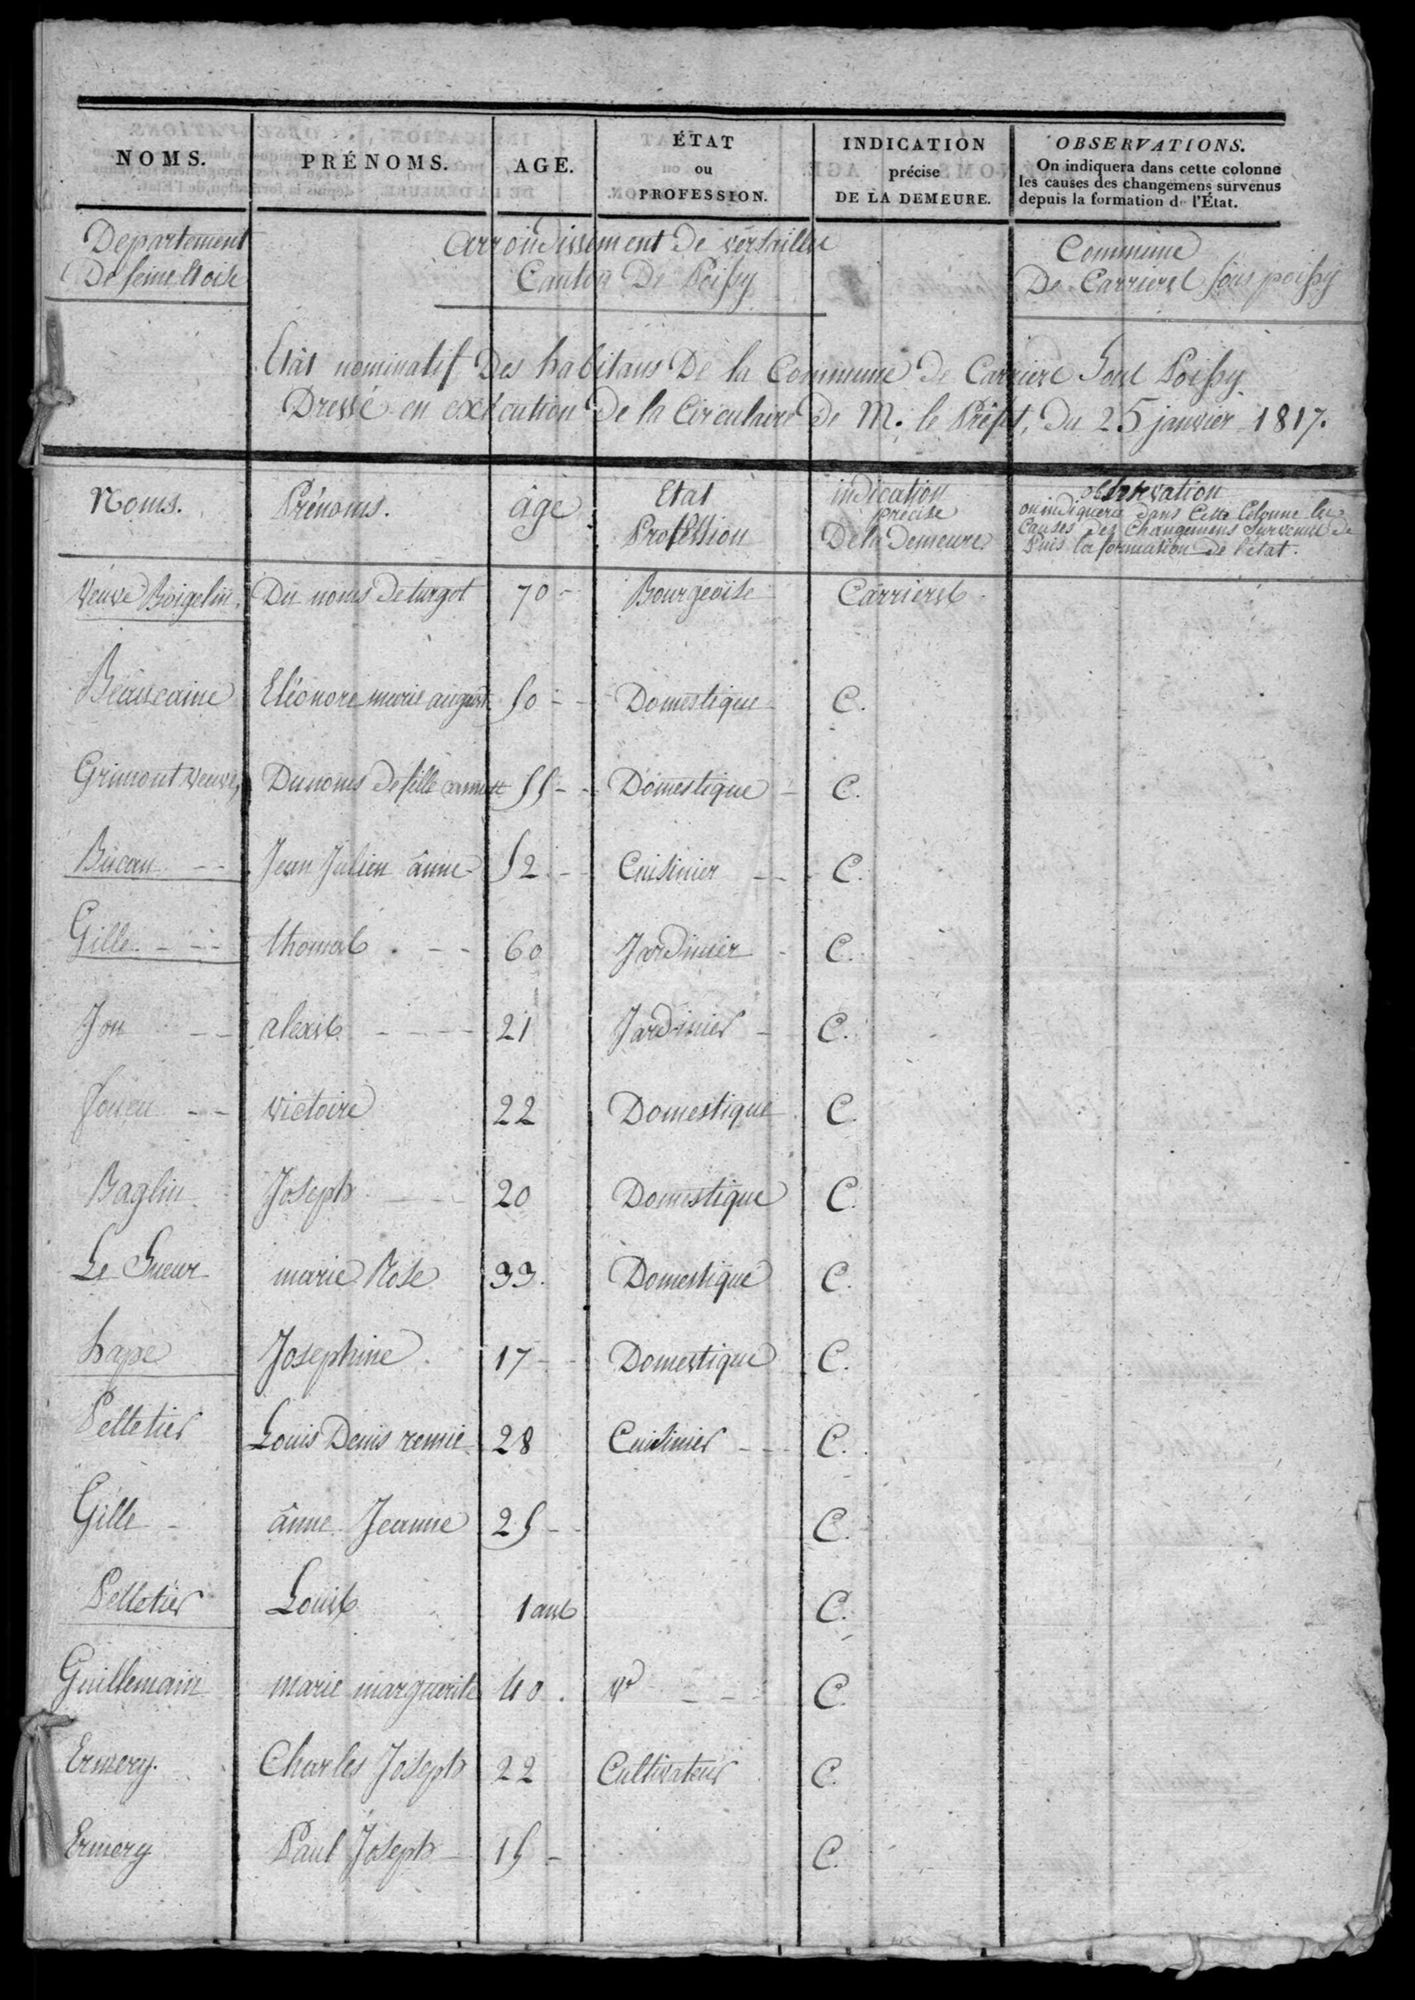 NOMS. PRÉNOMS. AGE. ÉTAT ou PROFESSION. INDICATION précise DE LA DEMEURE. OBSERVATIONS.
On indiquera dans cette colonne
les causes des changemens survenus
depuis la formation de l'État.
Departement De Seine et oise
arrondissement de versailles
Canton De Poissy
Commune
De Carrieres sous poissy
Etât nominatif Des habitans De la Commune de Carriere Sous Poissy
Dressé en exécution de la Circulaire de M. le Préfet, du 25 janvier 1817.
Noms. Prénoms. âge Etat Profession indication précise De la Demeure observation
on indiquera dans Cette Colonne les
Causes des Changemens Survenus de
Puis la formation de l'état.
Veuve Boigelin. Du noms de turgot 70 - Bourgeoise Carrieres
Beaucaine Eléonore marie august 50 - - Domestique C.
Grimont veuve, Du noms de fille 55 - - Domestique - C.
Bucan - - Jean Julien ânne 52 - - Cuisinier - - - C.
Gille - - - thomas - - 60 Jardinier - C.
Jon - - alexis - - - - 21 Jardinier - C.
- - victoire 22 Domestique C.
Baglin Joseph - - - 20 Domestique C.
Le Sueur marie Rose 33. Domestique C.
hape Josephine 17 - - Domestique C.
Pelletier Louis Denis remie 28 Cuisinier - - - C.
Gille - ânne Jeanne 25 - - C.
Pelletier Louis 1 ans C.
Guillemain marie marguerite 40. Ve - - - C.
Ermery. Charles Joseph 22 Cultivateur C.
Ermery Paul Joseph - 15 - C.